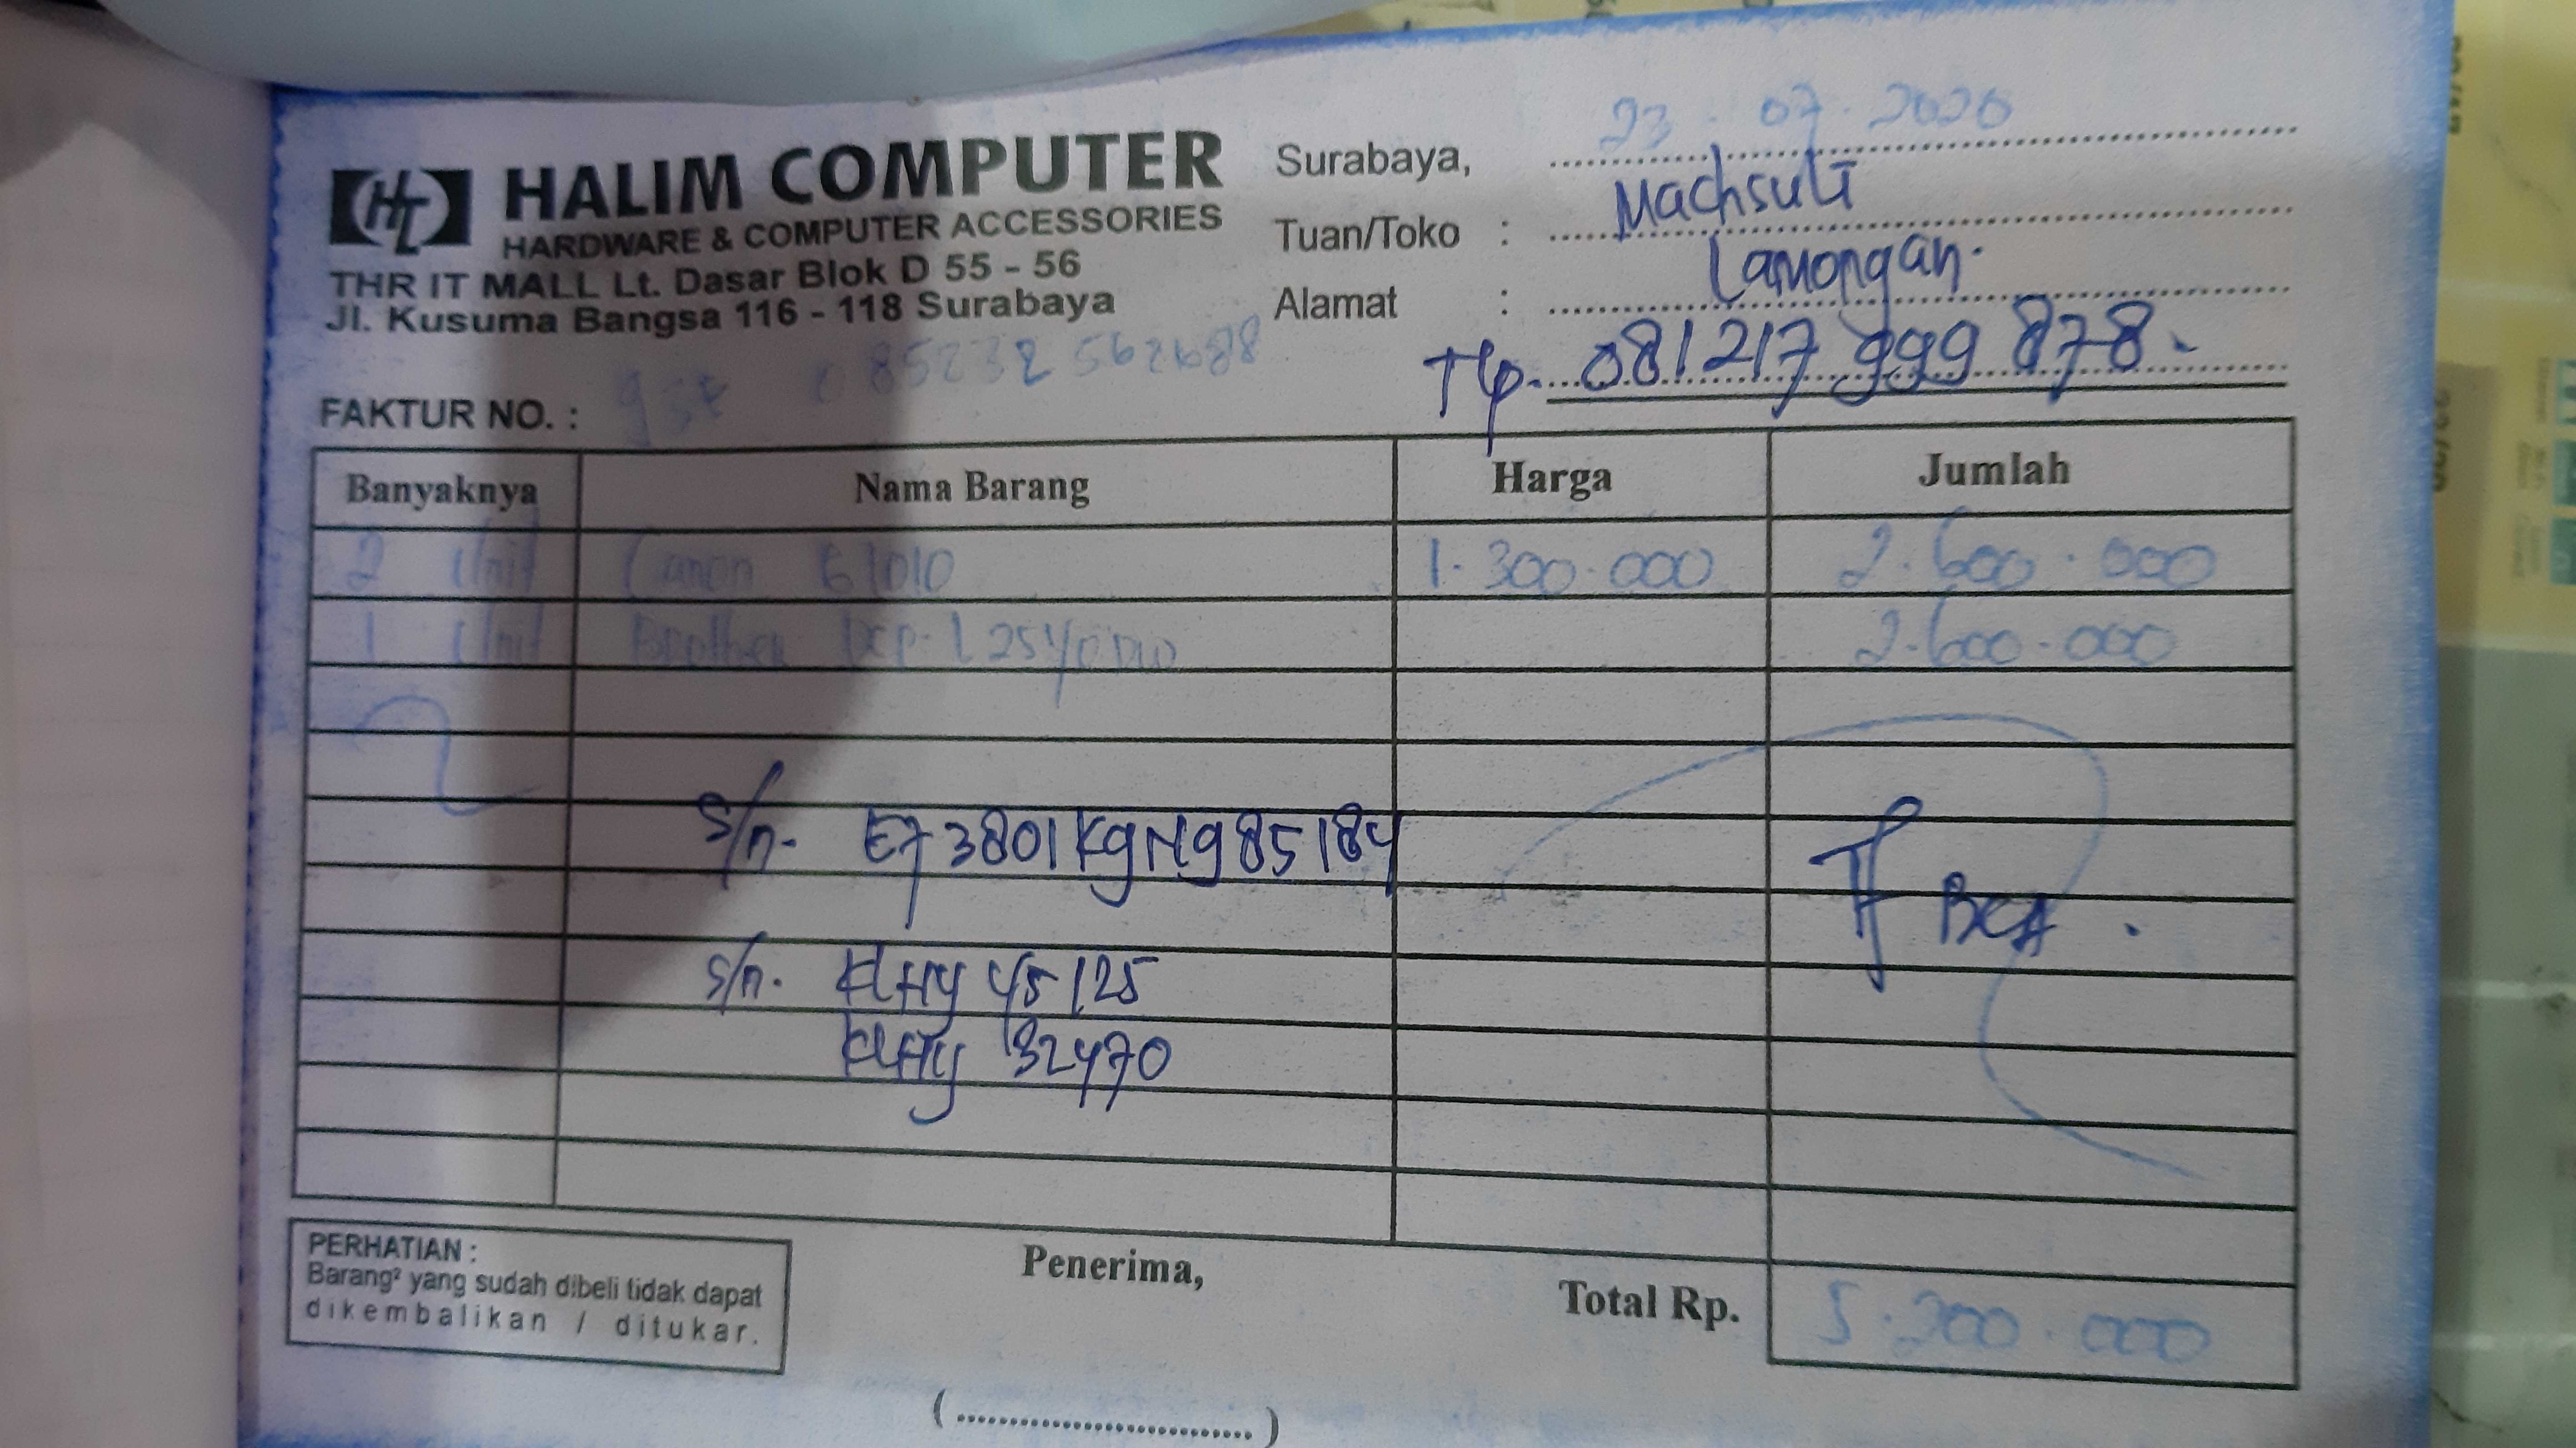 HALIM COMPUTER
HARDWARE & COMPUTER ACCESSORIES
THR IT MALL Lt. Dasar Blok D 55 - 56
Jl. Kusuma Bangsa 116 - 118 Surabaya
085232 562688
Surabaya, 23 - 07 - 2020
Tuan/Toko : Machsuli
Alamat : Lamongan.
Tlp. 081217 999 878.
FAKTUR NO. :
Banyaknya Nama Barang Harga Jumlah
2 Unit Canon G1010 1.300.000 2.600.000
1 Unit Brother DCP-L2540DW 2.600.000
S/n. E73801K9N985184
TF BCA.
S/n. KLHY 45125
KLHY 32470
PERHATIAN :
Barang² yang sudah dibeli tidak dapat
dikembalikan / ditukar.
Penerima,
Total Rp. 5.200.000
(..............................)